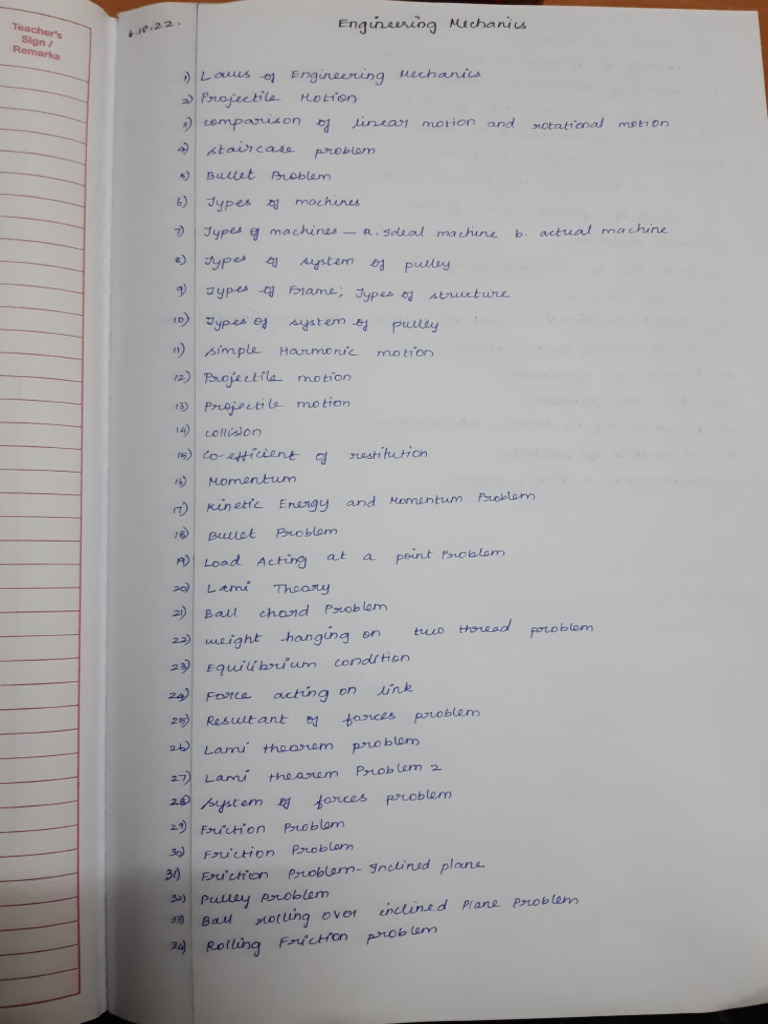 Teacher's
Sign /
Remarks
6.10.22.
Engineering Mechanics
1) Laws of Engineering Mechanics
2) Projectile Motion
3) comparison of linear motion and rotational motion
4) staircase problem
5) Bullet Problem
6) Types of machines
7) Types of machines - a. Ideal machine b. actual machine
8) Types of system of pulley
9) Types of Frame; Types of structure
10) Types of system of pulley
11) simple Harmonic motion
12) Projectile motion
13) Projectile motion
14) collision
15) Co-efficient of restitution
16) Momentum
17) Kinetic Energy and Momentum Problem
18) Bullet Problem
19) Load Acting at a point Problem
20) Lami Theory
21) Ball chord Problem
22) weight hanging on two thread problem
23) Equilibrium condition
24) Force acting on link
25) Resultant of forces problem
26) Lami theorem problem
27) Lami thearem Problem 2
28) system of forces problem
29) Friction Problem
30) Friction Problem
31) Friction Problem - Inclined plane
32) Pulley Problem
33) Ball rolling over inclined Plane Problem
34) Rolling Friction problem